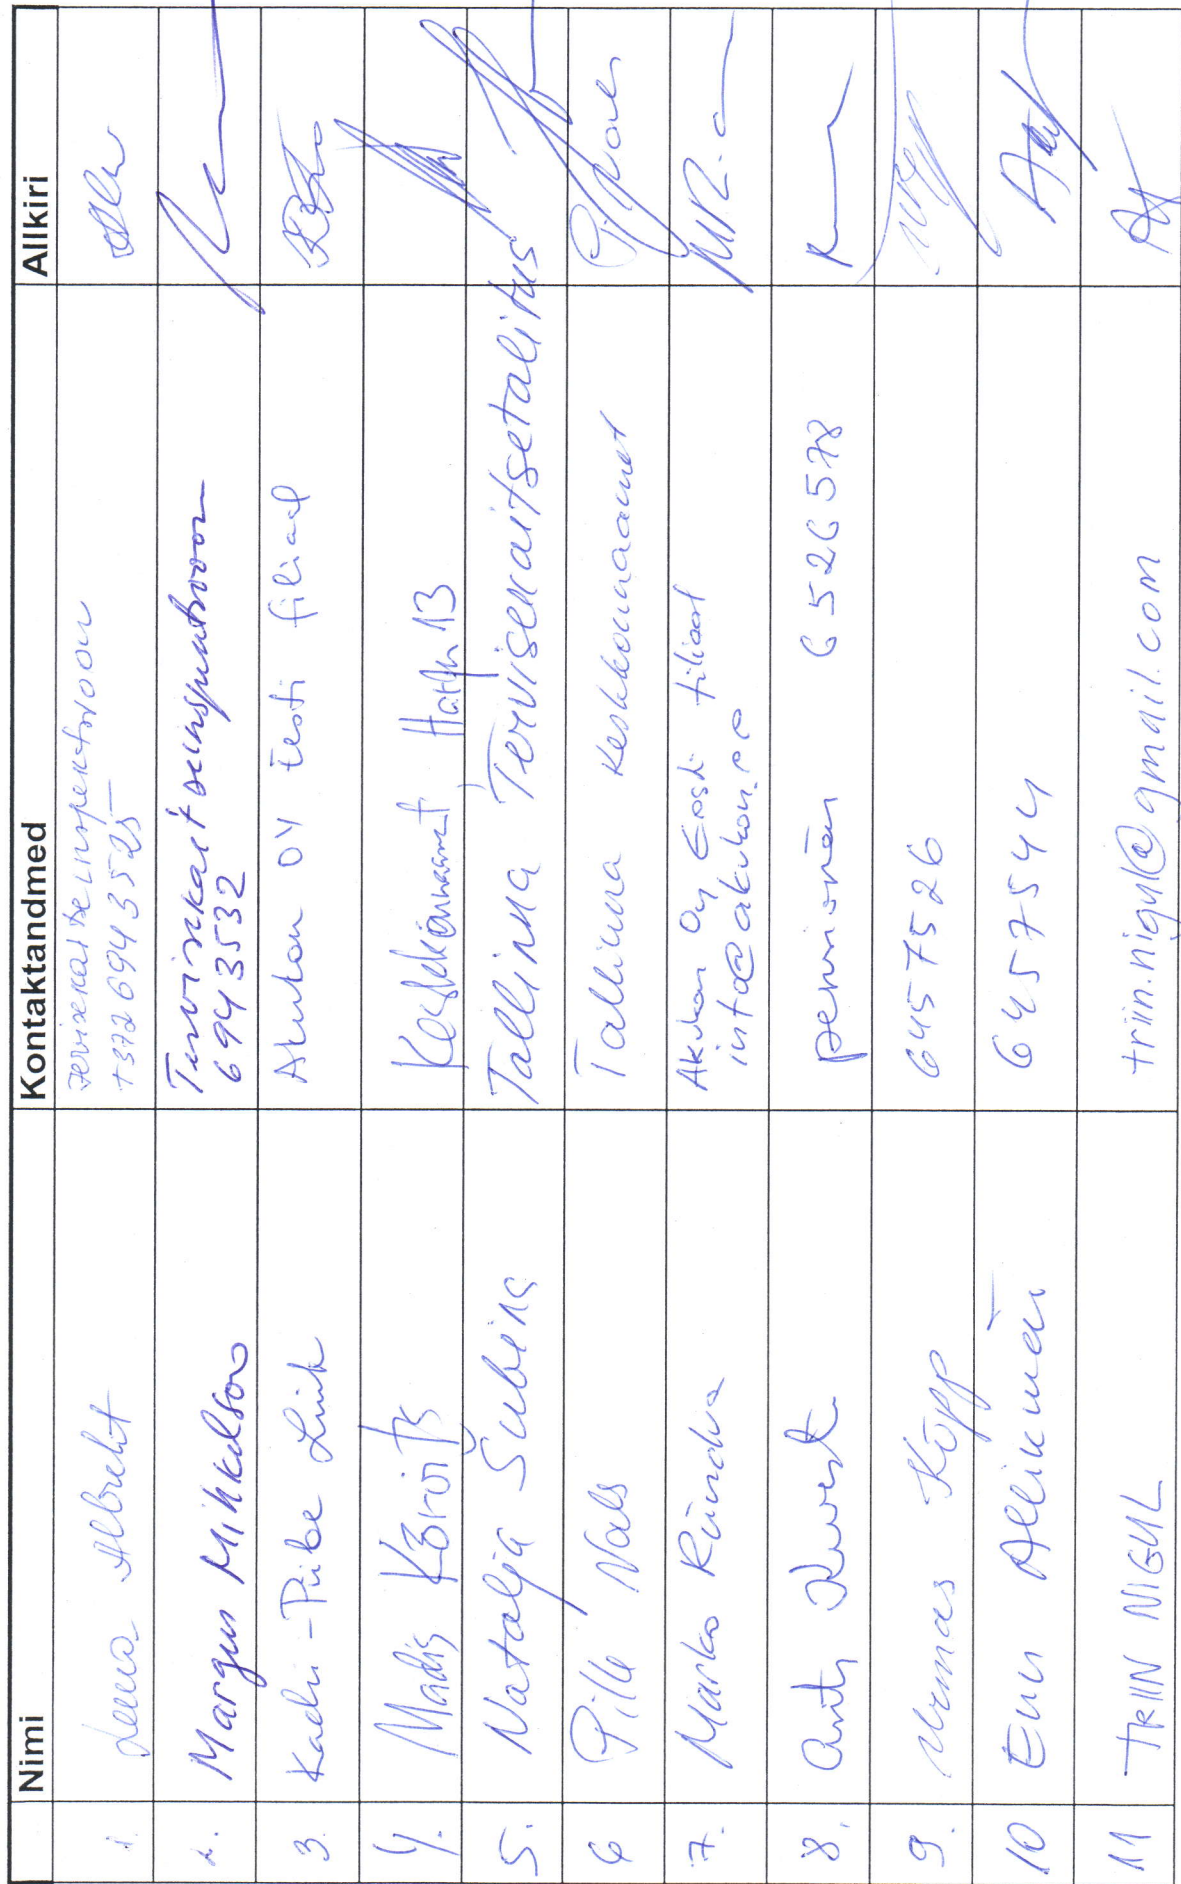 Nimi Kontaktandmed Allkiri
1. Leena Albreht Tervisekaitseinspektsioon
+372 6943525
2. Margus Mihkelson Tervisekaitseinspektsioon
6943532
3. Kadri-Piibe Link Akukon OY Eesti filiaal
4. Madis Kõrvits Keskkonnaamet Harju 13
5. Natalja Šubina Tallinna Tervisekaitsetalitus
6 Pille Vals Tallinna Keskkonnaamet
7. Marko Ründva Akukon Oy Eesti filiaal
info@akukon.ee
8. pensionär 6526578
9. Urmas Kõpp 6457526
10 Enn Allikmäe 6457544
11 TRIIN NIGUL triin.nigul@gmail.com